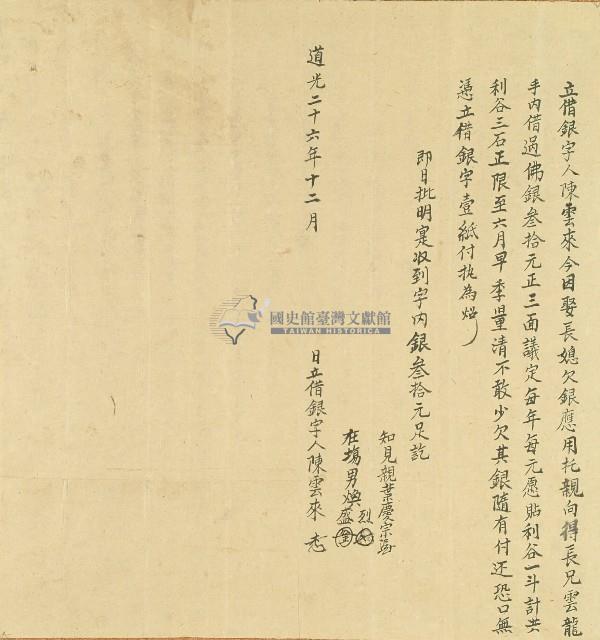 立借銀字人陳雲來今因娶長媳欠銀應用托親向得長兄雲龍
手內借過佛銀叁拾元正三面議定每年每元愿貼利谷一斗計共
利谷三石正限至六月早季量清不敢少欠其銀隨有付还恐口無
憑立借銀字壹紙付执為炤
即日批明寔收到字內銀叁拾元足訖
知見親葉慶宗
在塲男煥烈盛
道光二十六年十二月
日立借銀字人陳雲來
國史館臺灣文獻館
TAIWAN HISTORICA